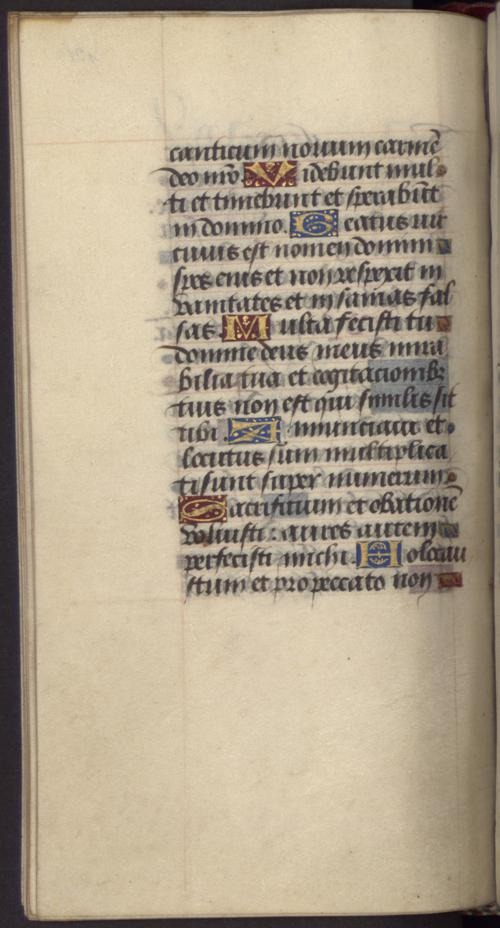 canticum nouum carmē
deo nr̄o Videbunt mul
ti et timebunt et sperabūt
in domino. Beatus uir
cuius est nomen domini
spes eius et non respexit in
vanitates et insanias fal
sas. Multa fecisti tu
domine deus meus mira
bilia tua et cogitacionibꝫ
tuis non est qui similis sit
tibi Annunciaui et
locutus sum multiplica
ti sunt super numerum
Sacrificium et oblationē
voluisti : aures autem
perfecisti michi. Holocau
stum et pro peccato non